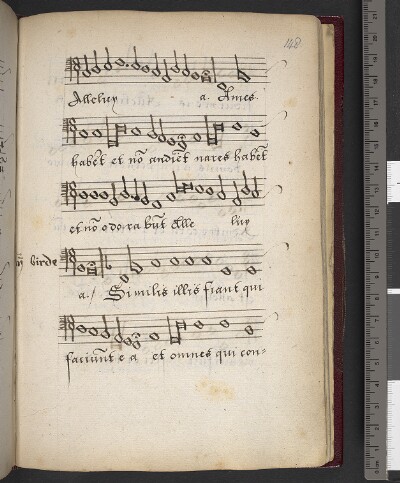 148
Alleluy a. Aures
habēt et nō audiēt nares habēt
et nō odorabūt Alle luy
birde
a./ Similis illis fiant qui
faciūnt e a et omnes qui con-